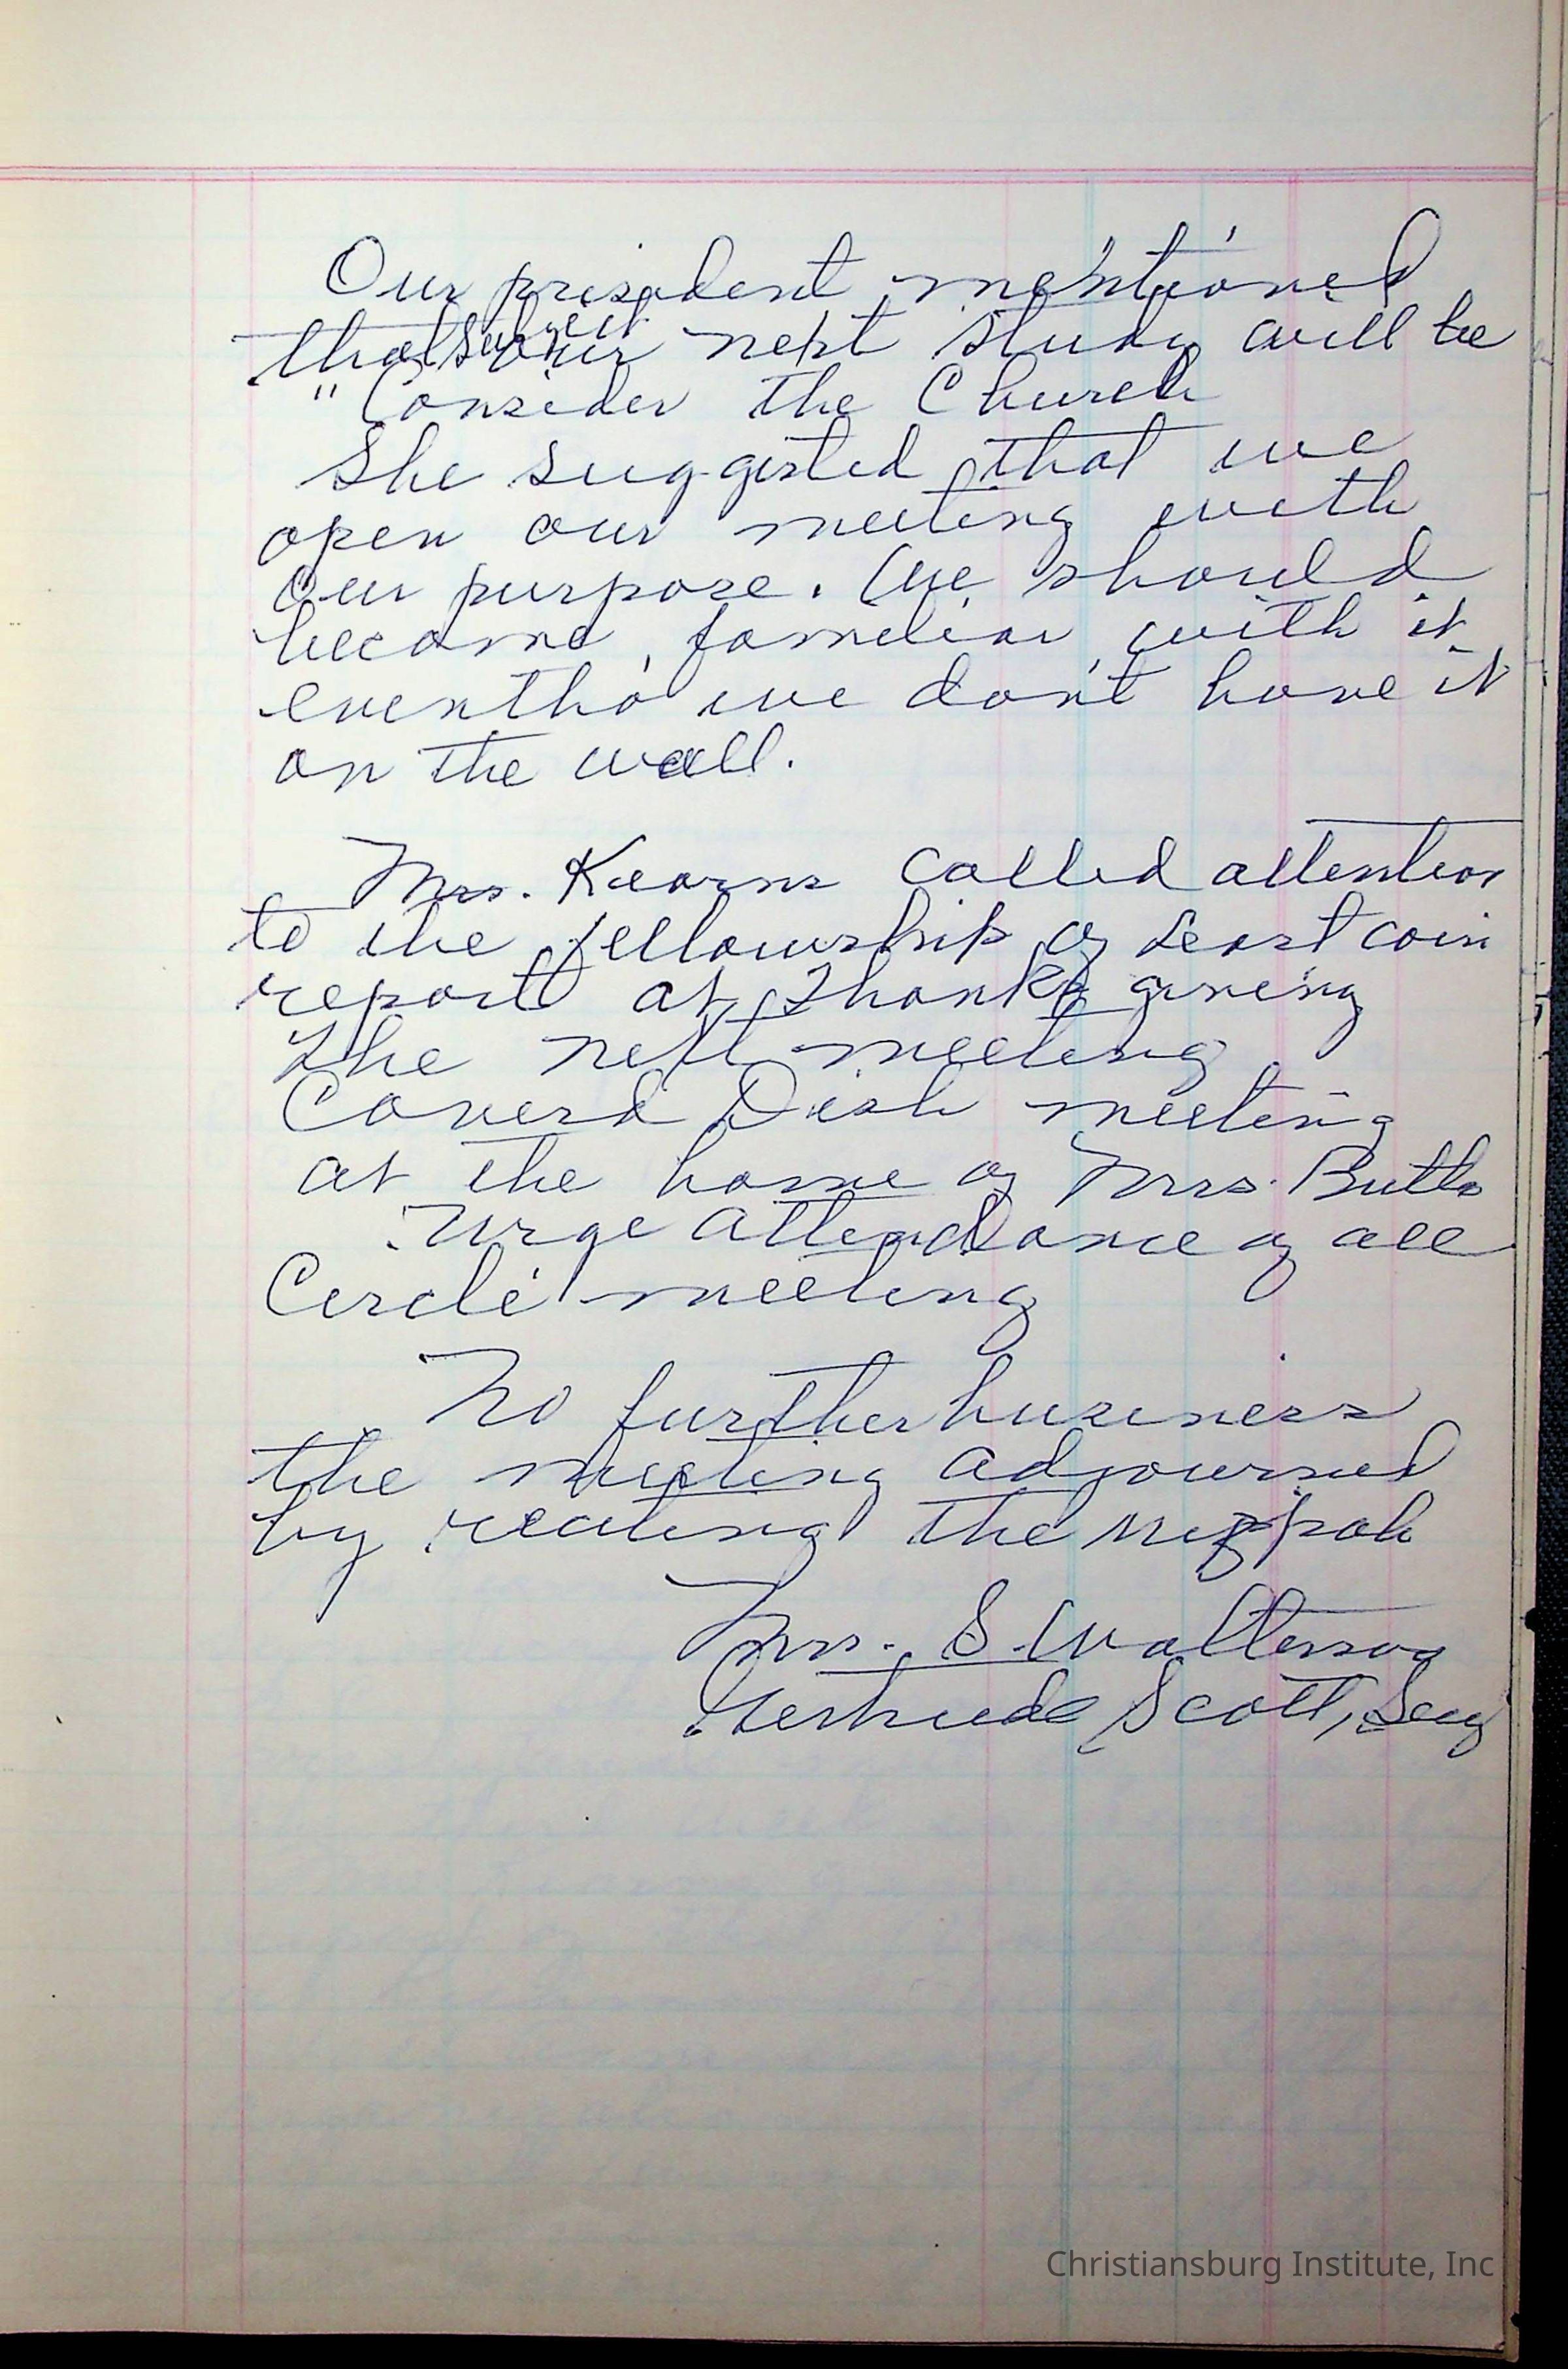 Our president mentioned
that subject our next study will be
"Consider the Church
She suggested that we
open our meeting with
our purpose. We should
become familiar with it
eventho' we don't have it
on the wall.
Mrs. Kearns called attention
to the fellowship of least coin
report at Thanks giving
The next meeting
Coverd Dish meeting
at the home of Mrs. Butts
Urge attendance of all
Circle meeting
No further business
the meeting adjourned
by reciting the mizpah
Mrs. S. Watterson
Gertrude Scott, Secy
Christiansburg Institute, Inc